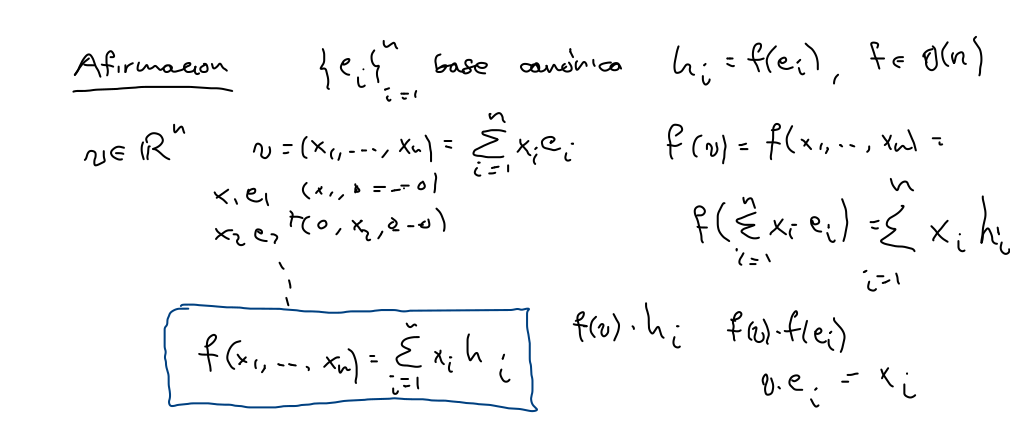 Afirmacion {e_i}_{i=1}^n base canónica h_i = f(e_i), f ∈ O(n)
v ∈ ℝ^n v = (x_1, ..., x_n) = ∑_{i=1}^n x_i e_i f(v) = f(x_1, .., x_n) =
x_1 e_1 (x_1, 0 = -- 0)
x_2 e_2 + (0, x_2, 0 -- 0)
f(∑_{i=1}^n x_i e_i) = ∑_{i=1}^n x_i h_i
f(x_1, ..., x_n) = ∑_{i=1}^n x_i h_i
f(v) · h_i f(v) · f(e_i)
v · e_i = x_i